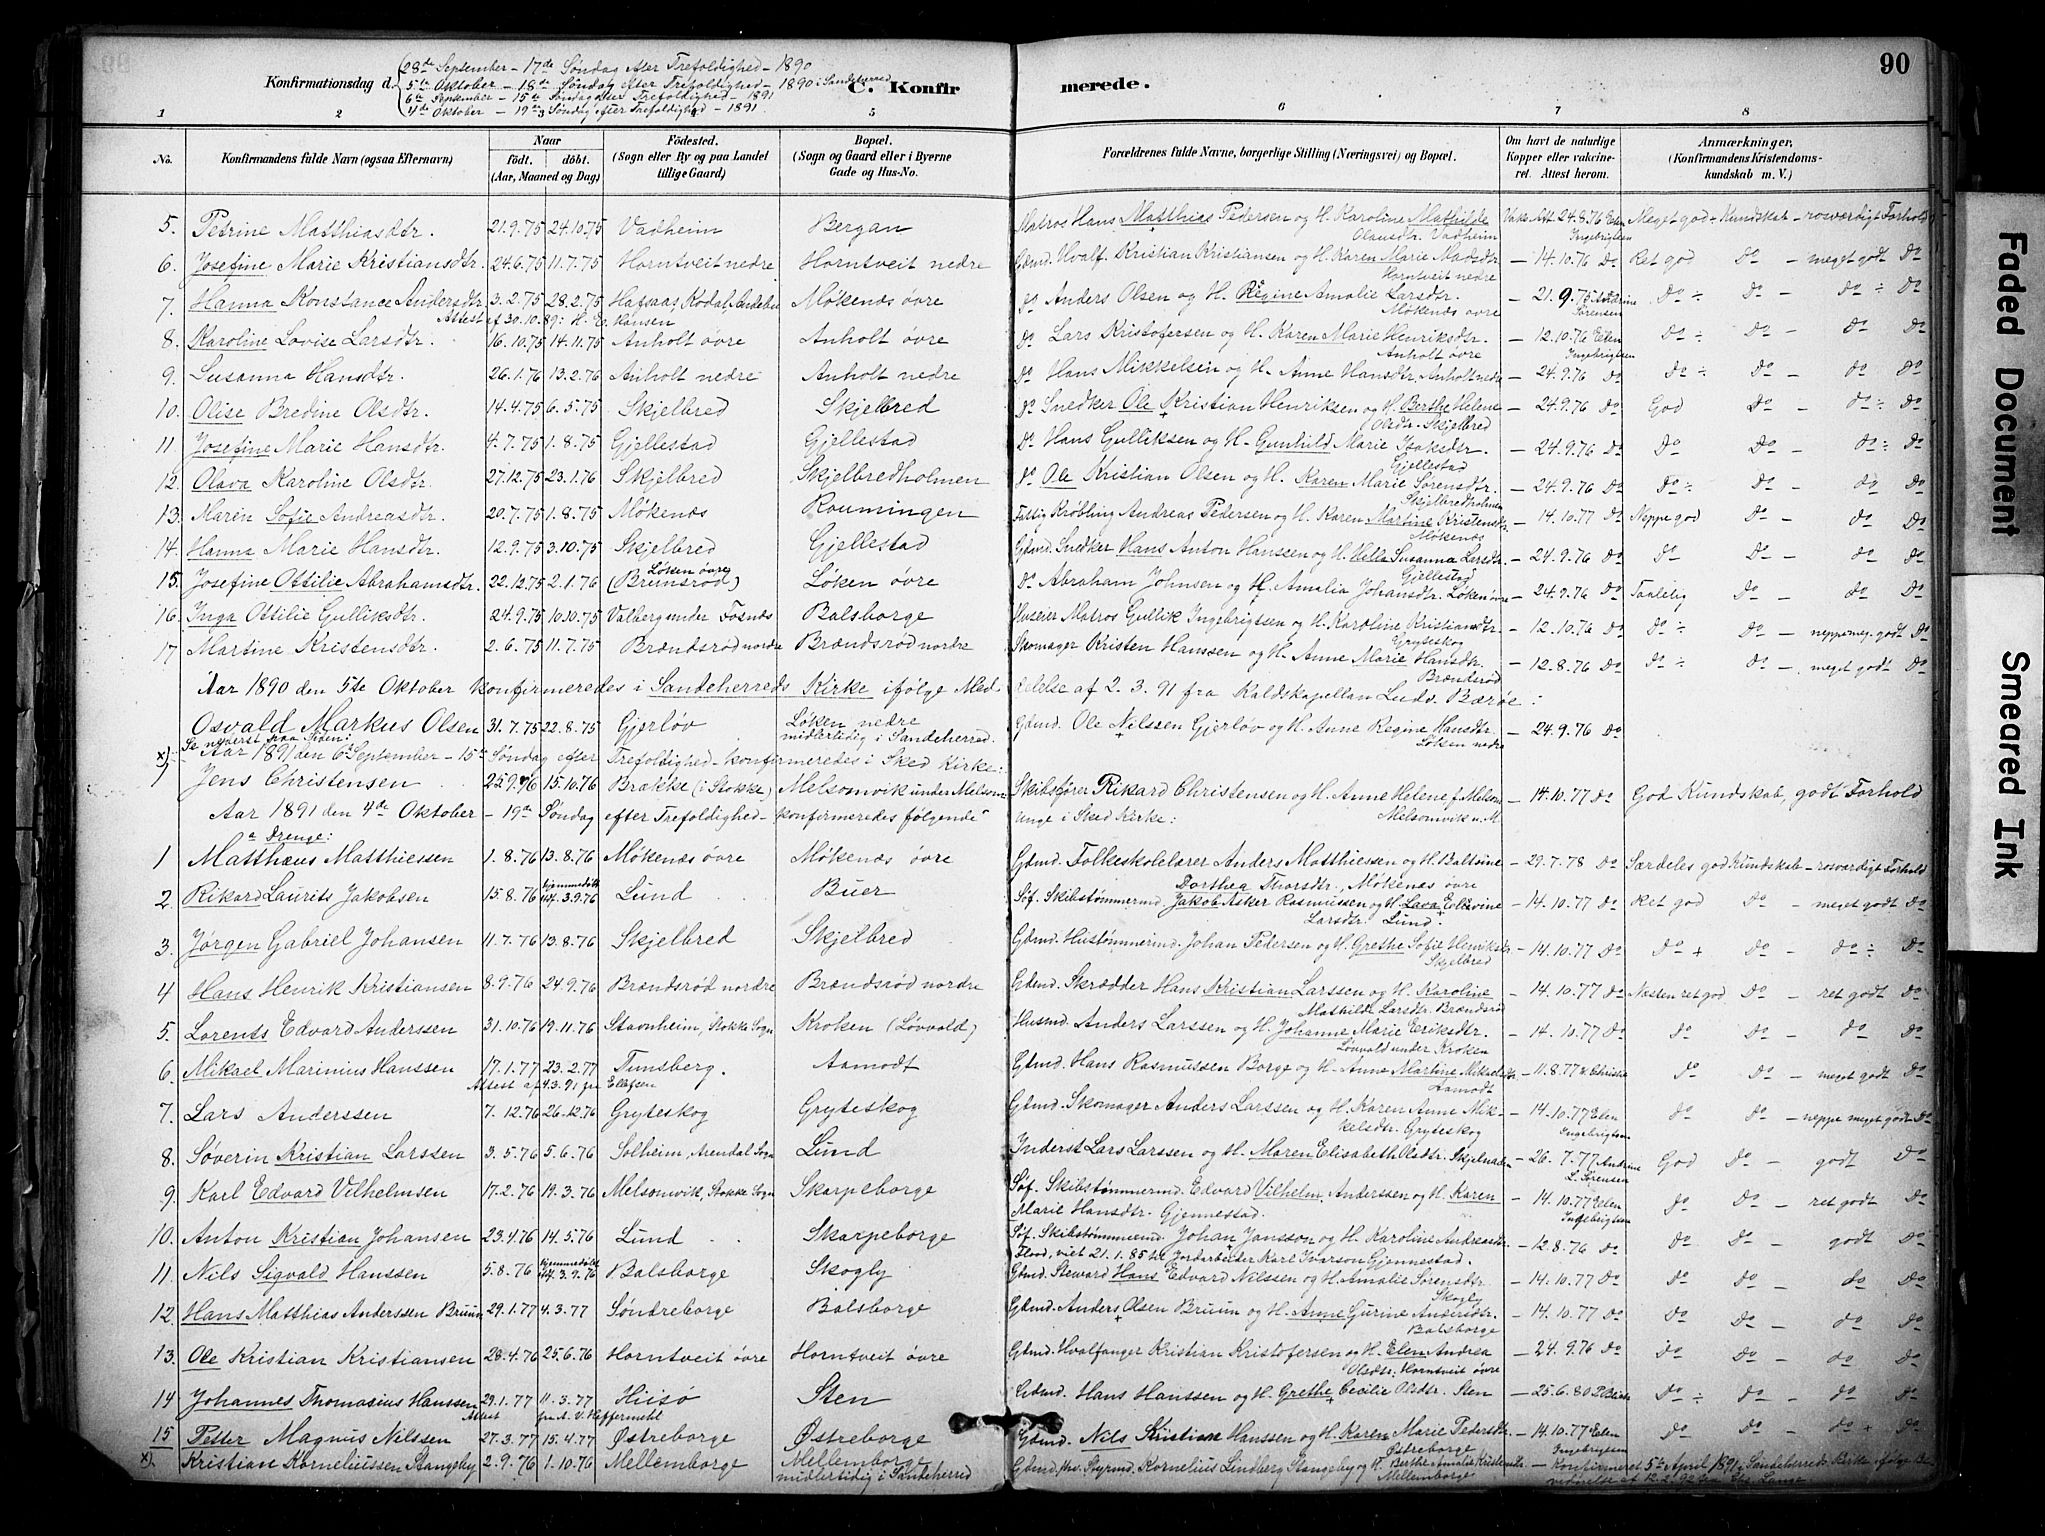 90
28de September – 17de Søndag efter Trefoldighed – 1890
Konfirmationsdag d. 5te Oktober – 18de Søndag efter Trefoldighed – 1890 i Sandeherred
C. Konfirmerede.
6te September – 15te Søndag efter Trefoldighed – 1891
4de Oktober – 19de Søndag efter Trefoldighed – 1891.
1 2 3 4 5 6 7 8
No. Konfirmandens fulde Navn (ogsaa Efternavn) Naar født. døbt. (Aar, Maaned og Dag) Fødested. (Sogn eller By og paa Landet tillige Gaard) Bopæl. (Sogn og Gaard eller i Byerne Gade og Hus-No. Forældrenes fulde Navne, borgerlige Stilling (Næringsvei) og Bopæl. Om havt de naturlige Kopper eller vakcineret. Attest herom. Anmærkninger. (Konfirmandens Kristendomskundskab m. V.)
5. Petrine Matthiasdtr. 21.9.75 24.10.75 Vadheim Bergan Matros Hans Matthias Pedersen og H. Karoline Mathilde Olausdtr. Vadheim Vaks. Att. 24.8.76 Elen Ingebrigtsen Meget god + Kundskab – rosværdigt Forhold
6. Josefine Marie Kristiansdtr. 24.6.75 11.7.75 Horntveit nedre Horntveit nedre Gdmd. Hvalf. Kristian Kristiansen og H. Karen Marie Madsdtr. Horntveit nedre – 14.10.76 Do Ret god Do – meget godt Do
7. Hanna Konstance Andersdtr. 3.2.75 28.2.75 Hafsaas, Kodal, Møkenæs øvre Do Anders Olsen og H. Regine Amalie Larsdtr. Møkenæs øvre – 21.9.75 Andrine Sørensen Do ÷ Do – Do ÷ Do
Attest af 30.10.89: H. E. Hansen
8. Karoline Lovise Larsdtr. 16.10.75 14.11.75 Anholt øvre Anholt øvre Do Lars Kristofersen og H. Karen Marie Henriksdtr. Anholt øvre – 12.10.76 Elen Ingebrigtsen Do ÷ Do – Do Do
9. Susanna Hansdtr. 26.1.76 13.2.76 Anholt nedre Anholt nedre Do Hans Mikkelsen og H. Anne Hansdtr. Anholt nedre – 24.9.76 Do Do ÷ Do – Do Do
10. Olise Bredine Olsdtr. 14.4.75 6.5.75 Skjelbred Skjelbred Do Snedker Ole Kristian Henriksen og H. Berthe Helene Olsdtr. Skjelbred – 24.9.76 Do God Do – Do ÷ Do
11. Josefine Marie Hansdtr. 4.7.75 1.8.75 Gjellestad Gjellestad Do Hans Gulliksen og H. Gunhild Marie Isaksdtr. Gjellestad – 24.9.76 Do Do Do – Do ÷ Do
12. Olava Karoline Olsdtr. 27.12.75 23.1.76 Skjelbred Skjelbredholmen Do Ole Kristian Olsen og H. Karen Marie Sørensdtr. Skjelbredholmen – 24.9.76 Do Do ÷ Do – Do Do
13. Maren Sofie Andreasdtr. 20.7.75 1.8.75 Møkenæs Roumingen Fattig Krøbling Andreas Pedersen og H. Karen Martine Kristensdtr. Møkenæs – 14.10.77 Do Neppe god Do – Do Do
14. Hanna Marie Hansdtr. 12.9.75 3.10.75 Skjelbred Gjellestad Gdmd. Snedker Hans Anton Hanssen og H. Helle Susanna Larsdtr. Gjellestad – 24.9.76 Do Do Do – Do Do
15. Josefine Ottilie Abrahamsdtr. 22.12.75 2.1.76 Løken øvre (Bremsrød) Løken øvre Do Abraham Johnsen og H. Amalia Johansdtr. Løken øvre – 24.9.76 Do Taalelig Do – Do Do
16. Inga Ottilie Gulliksdtr. 24.9.75 10.10.75 Valberg under Fosnæs Balsborge Huseier Matros Gullik Ingebrigtsen og H. Karoline Kristiansdtr. Gryteskog – 12.10.76 Do Do ÷ Do – neppe meg. godt Do
17 Martine Kristensdtr. 2.6.75 11.7.75 Brændsrød nordre Brændsrød nordre Skomager Kristen Hanssen og H. Anne Marie Hansdtr. Brændsrød – 12.8.76 Do Do ÷ Do – meget godt Do
Aar 1890 den 5te Oktober konfirmeredes i Sandeherreds Kirke ifølge Meddelelse af 2.3.91 fra Kaldskapellan Ludv. Bærøe:
Osvald Markus Olsen 31.7.75 22.8.75 Gjerløv Løken nedre midlertidig i Sandeherred. Gdmd. Ole Nilssen Gjerløv og H. Anne Regine Hansdtr. Løken nedre – 24.9.76 Do
x) Se nederst paa Siden:
Aar 1891 den 6te September – 15de Søndag efter Trefoldighed – konfirmeredes i Sked Kirke:
Jens Christensen 25.9.76 15.10.76 Brække (i Stokke) Melsomvik under Melsom Skibsfører Rikard Christensen og H. Anne Helene f. Melsom Melsomvik u. M. – 14.10.77 Do God Kundskab, godt Forhold
Aar 1891 den 4de Oktober – 19de Søndag efter Trefoldighed – konfirmeredes følgende Unge i Sked Kirke:
a Drenge:
1 Matthæus Matthiessen 1.8.76 13.8.76 Møkenæs øvre Møkenæs øvre Gdmd. Folkeskolelærer Anders Matthiessen og H. Baltsine Dorthea Thorsdtr., Møkenæs øvre – 29.7.78 Do Særdeles god Kundskab – rosværdigt Forhold
2. Rikard Laurits Jakobsen 15.8.76 hjemmedøbt 3.9.76 Lund Buer Søf. Skibstømmermd. Jakob Asker Rasmussen og H. Lava Eellevine Larsdtr. Lund. – 14.10.77 Do Ret god Do – meget godt Do
3. Jørgen Gabriel Johansen 11.7.76 13.8.76 Skjelbred Skjelbred Gdmd. Hustømmermd. Johan Pedersen og H. Grethe Sofie Henriksdtr. Skjelbred – 14.10.77 Do Do + Do – Do ÷ Do
4 Hans Henrik Kristiansen 8.9.76 24.9.76 Brændsrød nordre Brændsrød nordre Gdmd. Skrædder Hans Kristian Larssen og H. Karoline Mathilde Larsdtr. Brændsrød – 14.10.77 Do Næsten ret god Do – ret godt Do
5. Lorents Edvard Anderssen 31.10.76 19.11.76 Stavnheim, Stokke Sogn Kroken (Løvvald) Husmd. Anders Larssen og H. Johanne Marie Eriksdtr. Løvvald under Kroken – 14.10.77 Do Do Do – Do Do
6. Mikael Marinius Hanssen 17.1.77 23.2.77 Tunsberg. Aamodt Gdmd. Hans Rasmussen Borge og H. Anne Martine Mikaelsdtr. Aamodt – 11.8.77 Christie Do Do – meget godt Do
Attest af 4.3.91 fra Ellefsen
7. Lars Anderssen 7.12.76 26.12.76 Gryteskog Gryteskog Gdmd. Skomager Anders Larssen og H. Karen Anne Mikkelsdtr. Gryteskog – 14.10.77 Elen Ingebrigtsen Do Do – neppe meget godt Do
8. Søverin Kristian Larssen 3.5.76 5.6.76 Solheim, Arendal Sogn Lund Inderst Lars Larssen og H. Maren Elisabeth Olsdtr. Skjelnaden – 26.7.77 Andrine L. Sørensen God Do – godt Do
9. Karl Edvard Vilhelmsen 17.2.76 19.3.76 Melsomvik, Stokke Sogn Skarpeborge Søf. Skibstømmermd. Edvard Vilhelm Anderssen og H. Karen Marie Hansdtr. Gjennestad. – 14.10.77 Elen Ingebrigtsen Do Do – ret godt Do
10. Anton Kristian Johansen 23.4.76 14.5.76 Lund Skarpeborge Søf. Skibstømmermd. Johan Jansson og H. Karoline Andreasdtr. Flood, viet 21.1.85 til Jordarbeider Karl Ivarson Gjennestad. – 12.8.76 Do Do Do – godt Do
11. Nils Sigvald Hanssen 5.8.76 hjemmedøbt 3.9.76 Balsborge Skogly Gdmd. Steward Hans Edvard Nilssen og H. Amalie Sørensdtr. Skogly – 14.10.77 Do Do Do – Do Do
12. Hans Matthias Anderssen Bruun 29.1.77 4.3.77 Søndreborge Balsborge Gdmd. Anders Olsen Bruun og H. Anne Gurine Andersdtr. Balsborge – 14.10.77 Do Do Do – Do Do
13. Ole Kristian Kristiansen 28.4.76 25.6.76 Horntveit øvre Horntveit øvre Gdmd. Hvalfanger Kristian Kristofersen og H. Elen Andrea Olsdtr. Horntveit øvre – 24.9.76 Do Do Do – Do Do
14 Johannes Thomasius Hanssen 29.1.77 11.3.77 Hiisø Sten Gdmd. Hans Hanssen og H. Grethe Cecilie Olsdtr. Sten – 25.6.80 Do ÷ Do – Do Do
Attest fra A. V. Heffermehl
15 Petter Magnus Nilssen 27.3.77 15.4.77 Østreborge Østreborge Gdmd. Nils Kristian Hanssen og H. Karen Marie Pedersdtr. Østreborge – 14.10.77 Elen Ingebrigtsen Do Do – Do + Do
x). Kristian Korneliussen Stangeby 2.9.76 1.10.76 Mellemborge Mellemborge midlertidig i Sandeherred Gdmd. Styrmd. Kornelius Lindberg Stangeby og H. Berthe Amalie Kristensdtr. Mellemborge – Konfirmeret 5te April 1891 i Sandeherreds Kirke ifølge af 12.2.92 fra Lange
Faded Document
Smeared Ink